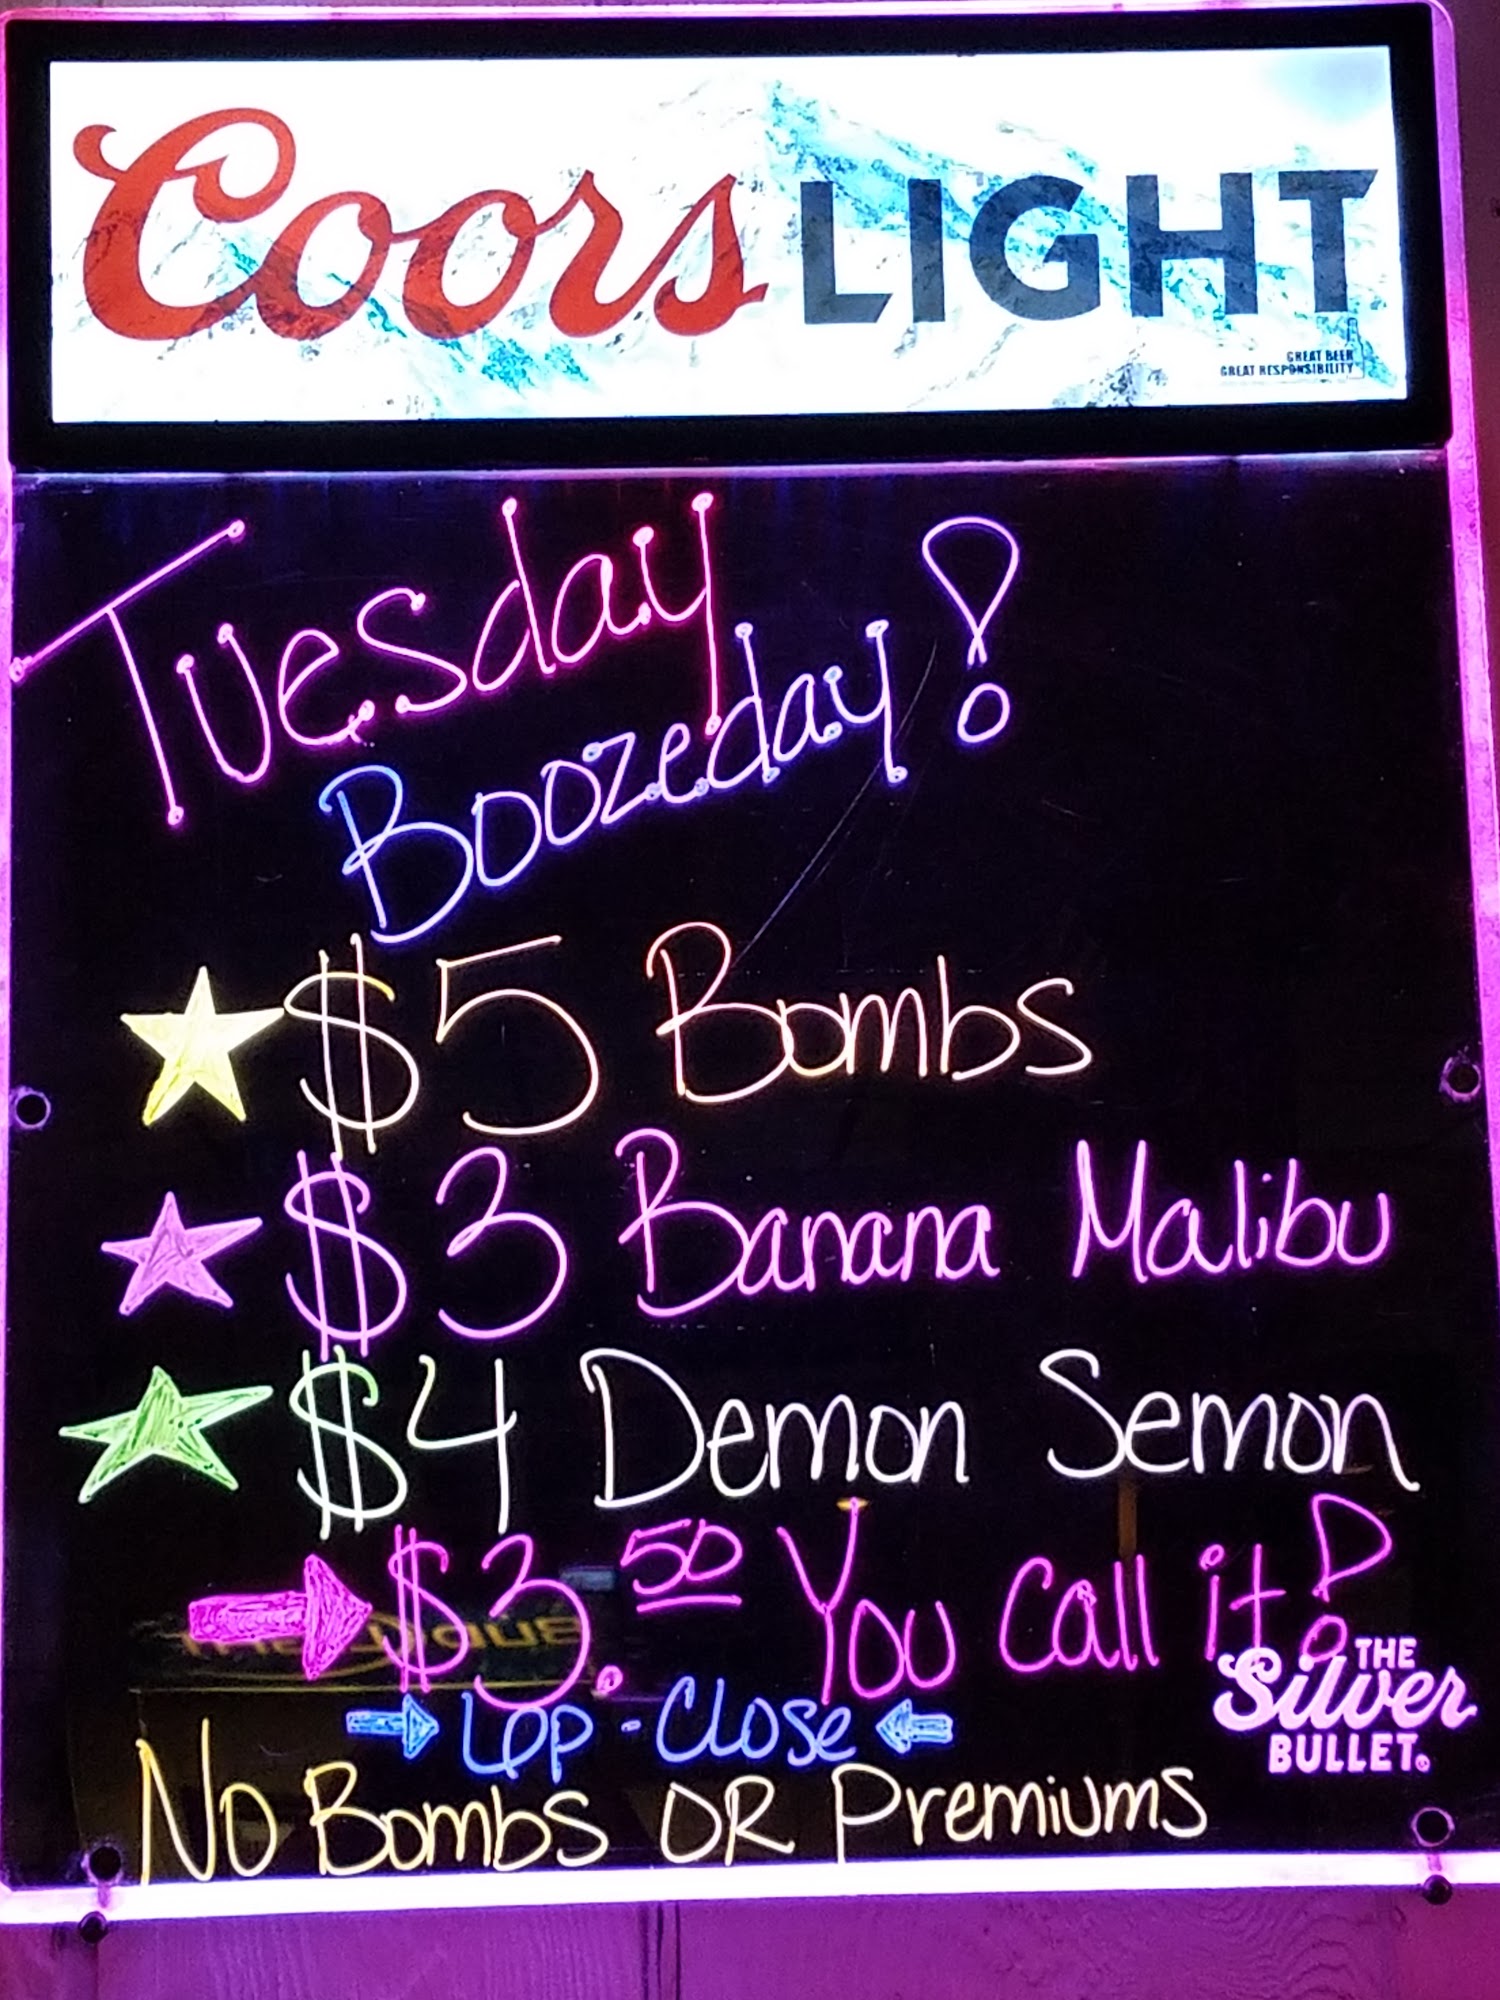 Coors LIGHT
GREAT BEER
GREAT RESPONSIBILITY
Tuesday
Boozeday!
$5 Bombs
$3 Banana Malibu
$4 Demon Semon
$3.50 You Call it!
6p - Close
No Bombs OR Premiums
THE
Silver
BULLET.